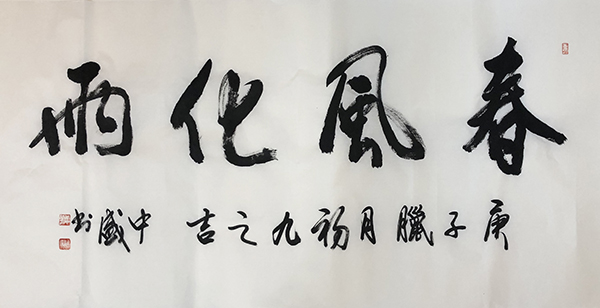 春風化雨
庚子臘月初九之吉 中盛书